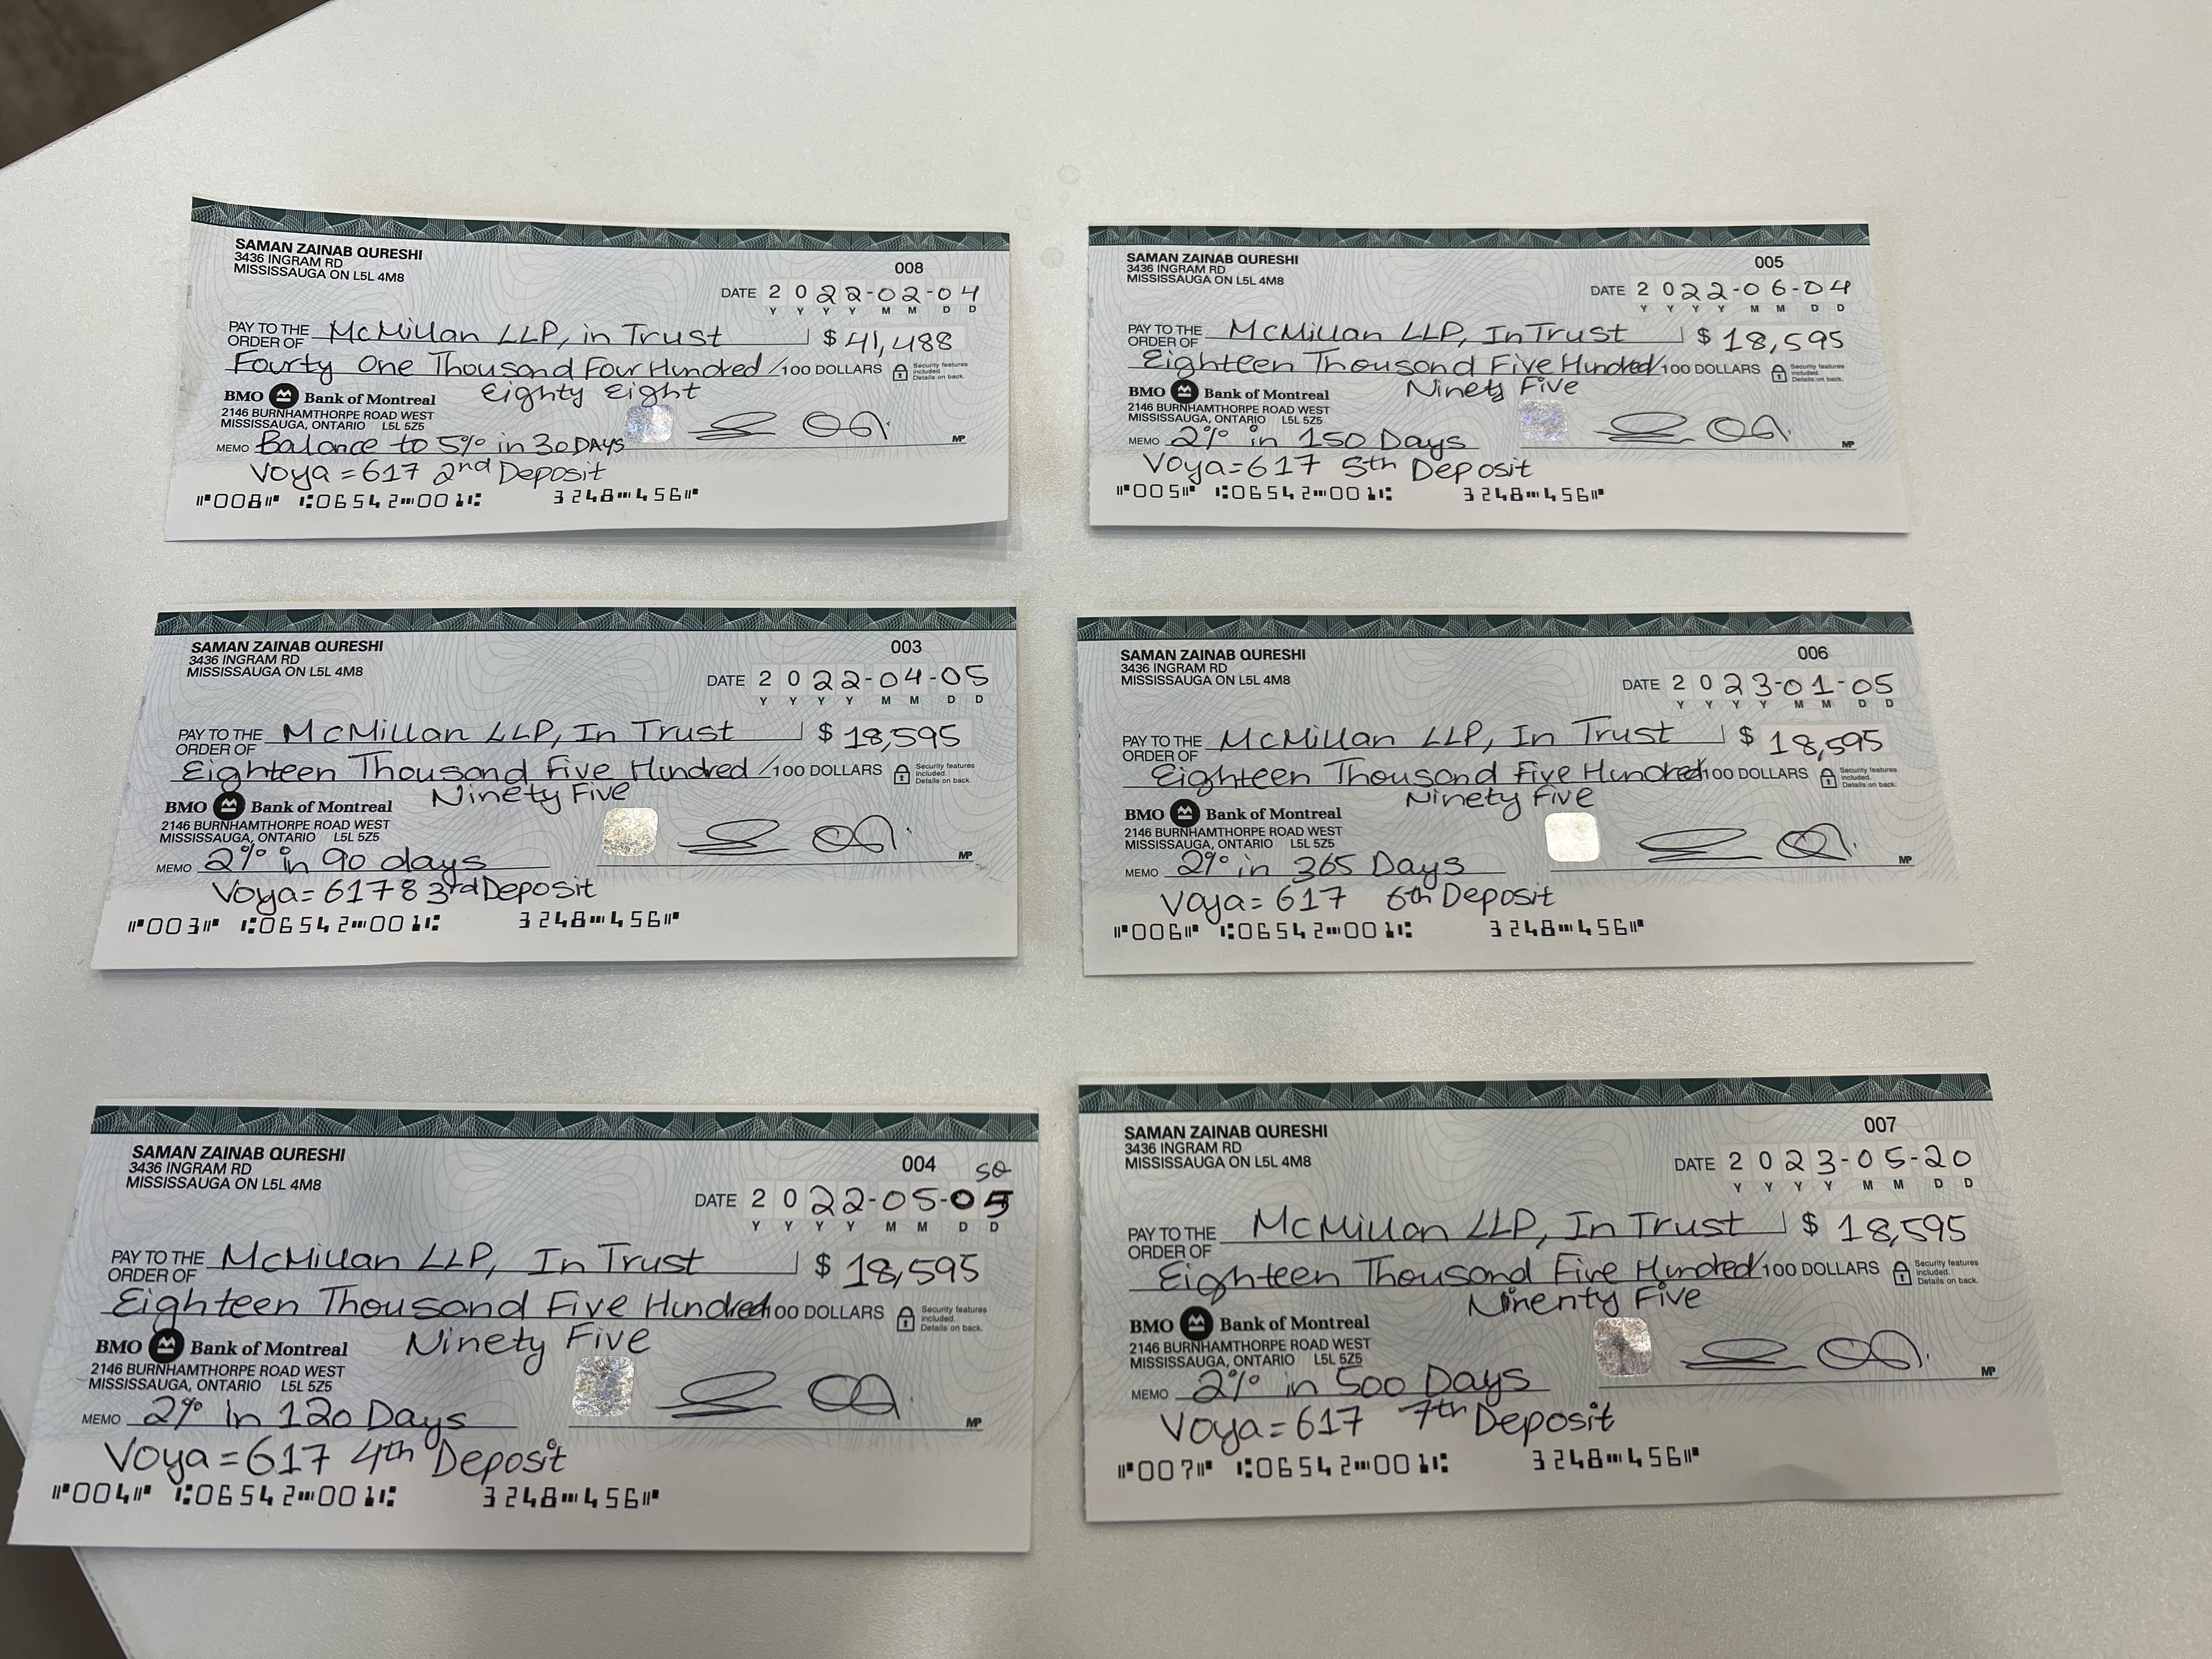 SAMAN ZAINAB QURESHI
3436 INGRAM RD
MISSISSAUGA ON L5L 4M8
008
DATE 2022-02-04
Y Y Y Y M M D D
PAY TO THE ORDER OF McMillan LLP, in Trust $ 41,488
Fourty One Thousand Four Hundred /100 DOLLARS Security features included. Details on back.
Eighty Eight
BMO Bank of Montreal
2146 BURNHAMTHORPE ROAD WEST
MISSISSAUGA, ONTARIO L5L 5Z5
MEMO Balance to 5% in 30 DAYS MP
Voya = 617 2nd Deposit
008 06542 001 3248 456
SAMAN ZAINAB QURESHI
3436 INGRAM RD
MISSISSAUGA ON L5L 4M8
003
DATE 2022-04-05
Y Y Y Y M M D D
PAY TO THE ORDER OF McMillan LLP, In Trust $ 18,595
Eighteen Thousand Five Hundred /100 DOLLARS Security features included. Details on back.
Ninety Five
BMO Bank of Montreal
2146 BURNHAMTHORPE ROAD WEST
MISSISSAUGA, ONTARIO L5L 5Z5
MEMO 2% in 90 days MP
Voya = 617 3rd Deposit
003 06542 001 3248 456
SAMAN ZAINAB QURESHI
3436 INGRAM RD
MISSISSAUGA ON L5L 4M8
004
SQ
DATE 2022-05-05
Y Y Y Y M M D D
PAY TO THE ORDER OF McMillan LLP, In Trust $ 18,595
Eighteen Thousand Five Hundred /100 DOLLARS Security features included. Details on back.
Ninety Five
BMO Bank of Montreal
2146 BURNHAMTHORPE ROAD WEST
MISSISSAUGA, ONTARIO L5L 5Z5
MEMO 2% in 120 Days MP
Voya = 617 4th Deposit
004 06542 001 3248 456
SAMAN ZAINAB QURESHI
3436 INGRAM RD
MISSISSAUGA ON L5L 4M8
005
DATE 2022-06-04
Y Y Y Y M M D D
PAY TO THE ORDER OF McMillan LLP, In Trust $ 18,595
Eighteen Thousand Five Hundred /100 DOLLARS Security features included. Details on back.
Ninety Five
BMO Bank of Montreal
2146 BURNHAMTHORPE ROAD WEST
MISSISSAUGA, ONTARIO L5L 5Z5
MEMO 2% in 150 Days MP
Voya = 617 5th Deposit
005 06542 001 3248 456
SAMAN ZAINAB QURESHI
3436 INGRAM RD
MISSISSAUGA ON L5L 4M8
006
DATE 2023-01-05
Y Y Y Y M M D D
PAY TO THE ORDER OF McMillan LLP, In Trust $ 18,595
Eighteen Thousand Five Hundred /100 DOLLARS Security features included. Details on back.
Ninety Five
BMO Bank of Montreal
2146 BURNHAMTHORPE ROAD WEST
MISSISSAUGA, ONTARIO L5L 5Z5
MEMO 2% in 365 Days MP
Voya = 617 6th Deposit
006 06542 001 3248 456
SAMAN ZAINAB QURESHI
3436 INGRAM RD
MISSISSAUGA ON L5L 4M8
007
DATE 2023-05-20
Y Y Y Y M M D D
PAY TO THE ORDER OF McMillan LLP, In Trust $ 18,595
Eighteen Thousand Five Hundred /100 DOLLARS Security features included. Details on back.
Ninenty Five
BMO Bank of Montreal
2146 BURNHAMTHORPE ROAD WEST
MISSISSAUGA, ONTARIO L5L 5Z5
MEMO 2% in 500 Days MP
Voya = 617 7th Deposit
007 06542 001 3248 456